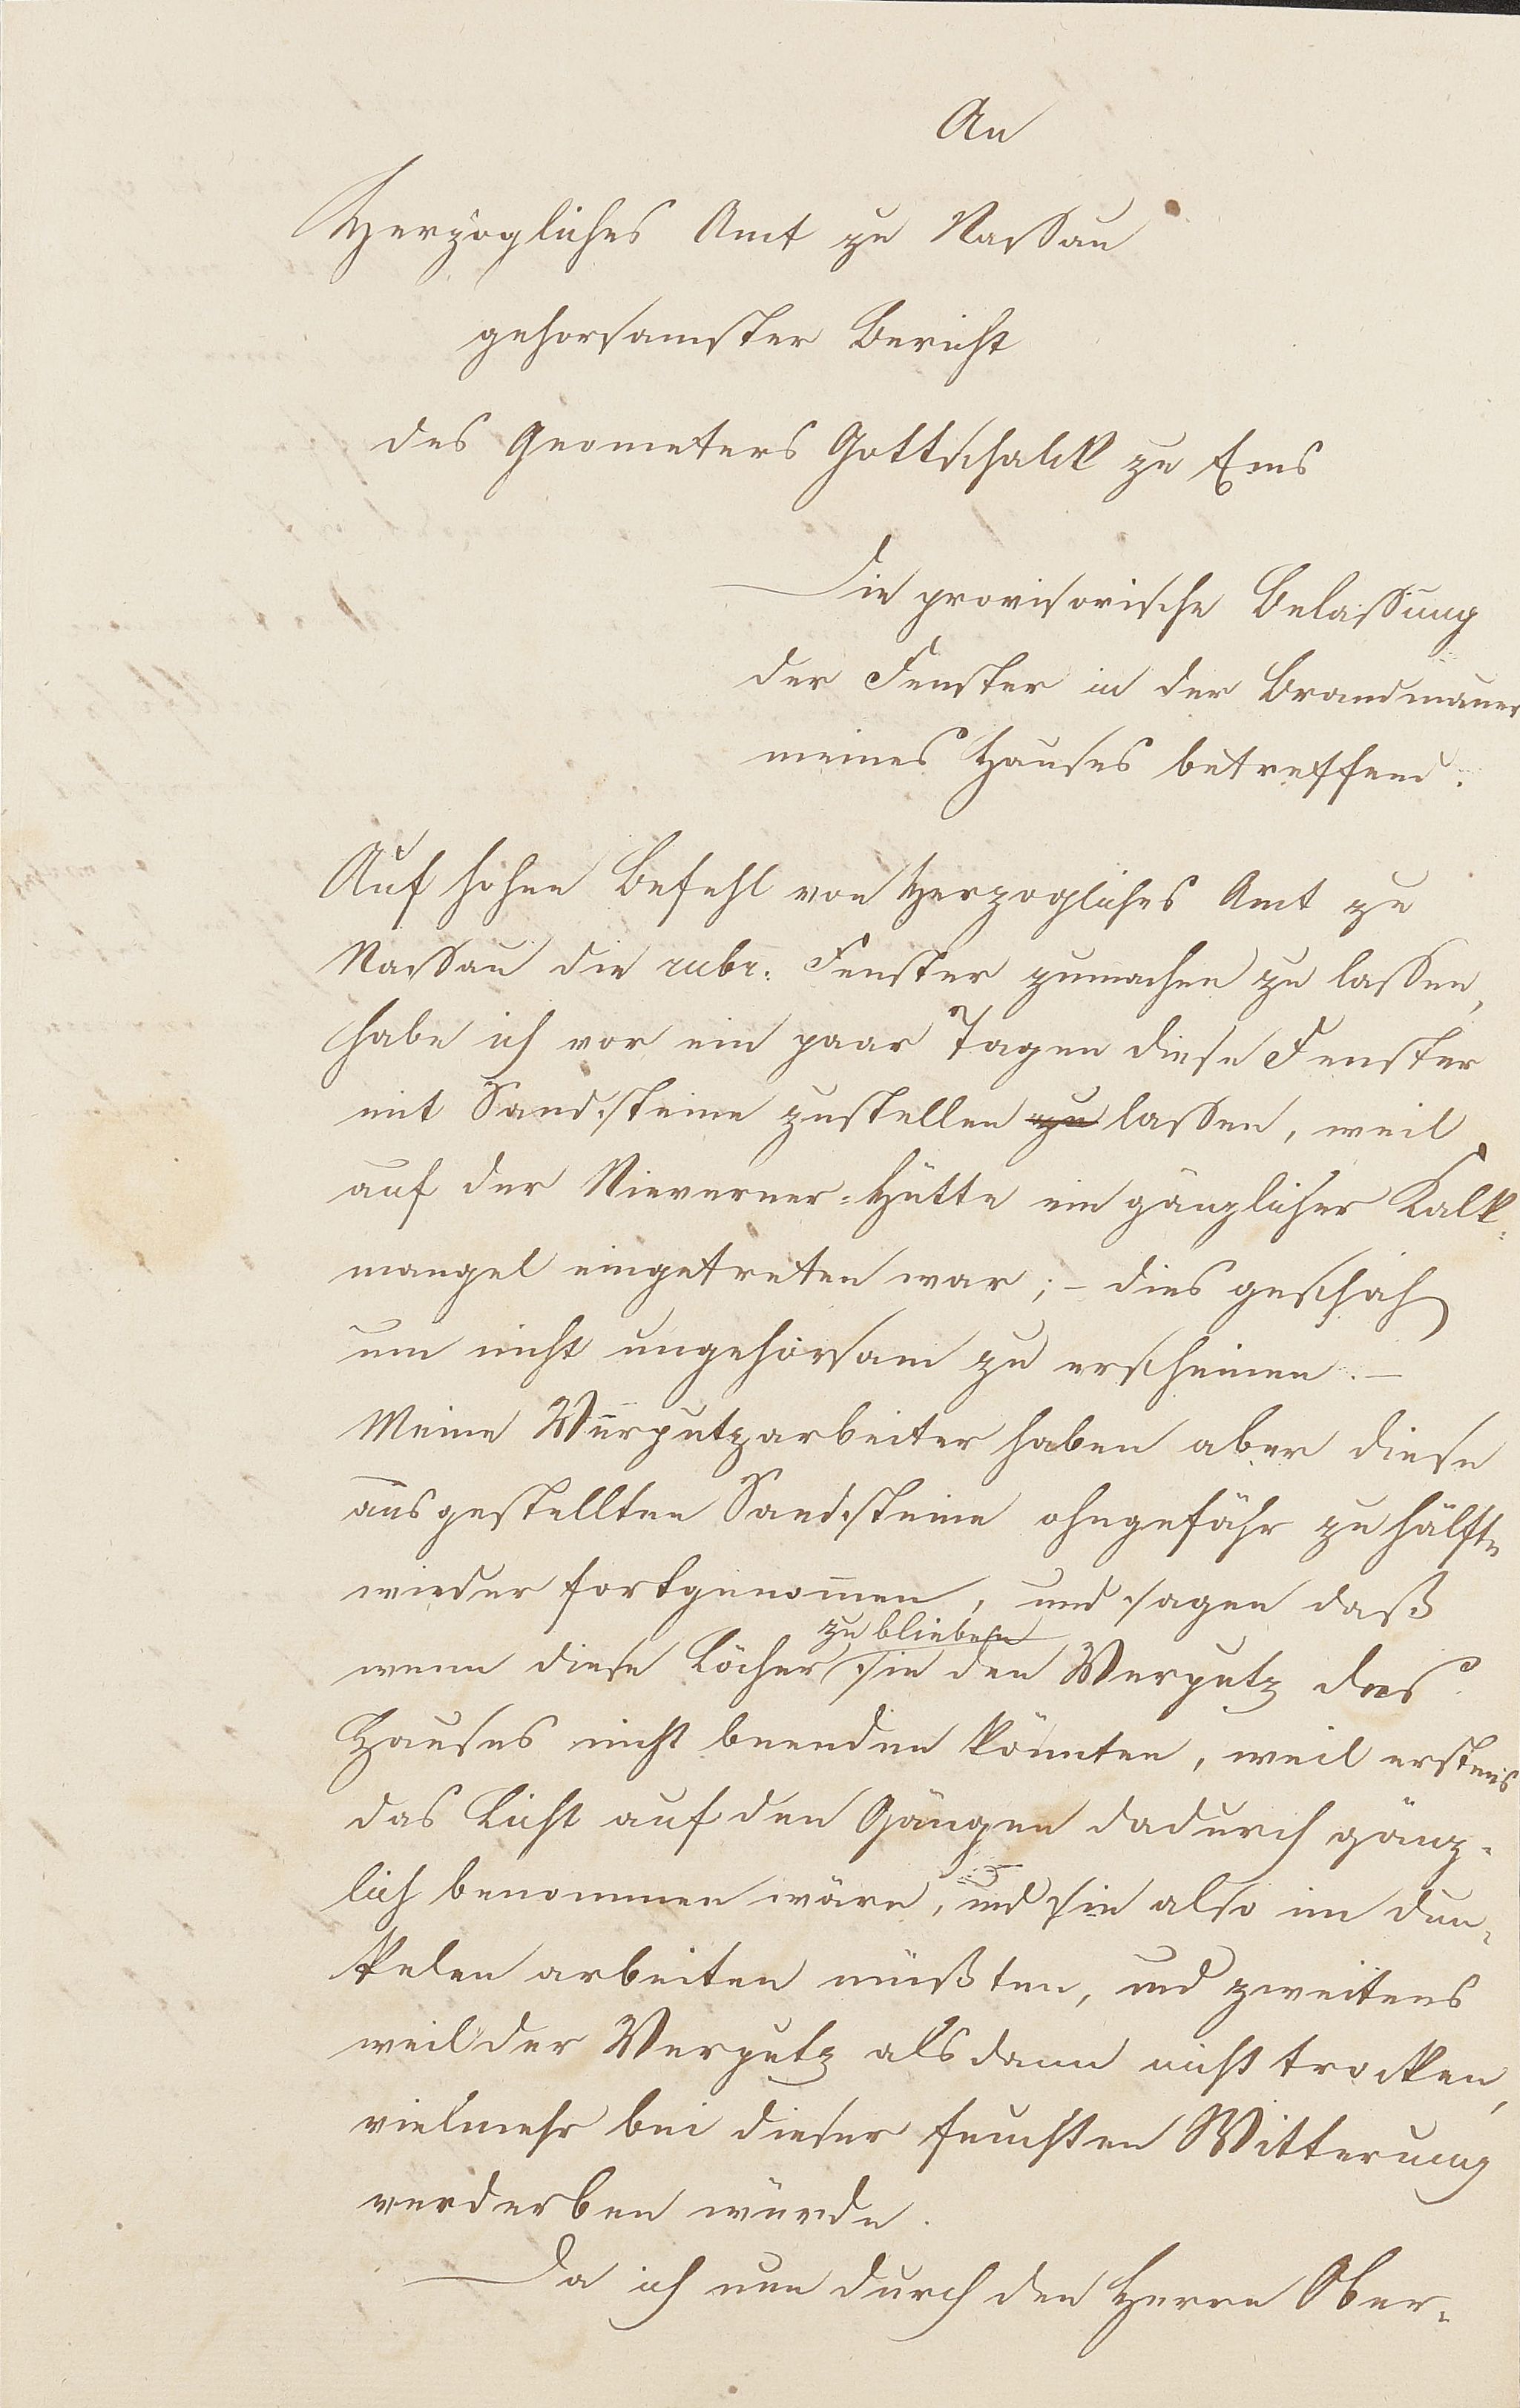 An
Herzogliches Amt zu Nassau
gehorsamster Bericht
des Geometers Gottschalk zu Ems
Die provisorische Belassung
der Fenster in der Brandmauer
meines Hauses betreffend.
Auf hohen Befehl von Herzogliches Amt zu
Nassau die rubr. Fenster zumachen zu lassen,
habe ich vor ein paar Tagen diese Fenster
mit Sandsteine zustellen zu lassen, weil
auf der Nieverner-Hütte ein gänzlicher Kalk-
mangel eingetreten war; - dies geschah
um nicht ungehorsam zu erscheinen. -
Meine Verputzarbeiter haben aber diese
ausgestellten Sandsteine ohngefähr zu hälfte
wieder fortgenommen, und sagen daß
zu blieben
wenn diese Löcher sie den Verputz des
Hauses nicht beenden könnten, weil erstens
das Licht auf den Gängen dadurch gänz-
lich benommen wäre, und sie also im dun-
kelen arbeiten müßten, und zweitens
weil der Verputz alsdann nicht trocken,
vielmehr bei dieser feuchten Witterung
verderben würde.
Da ich nun durch den Herrn Ober-